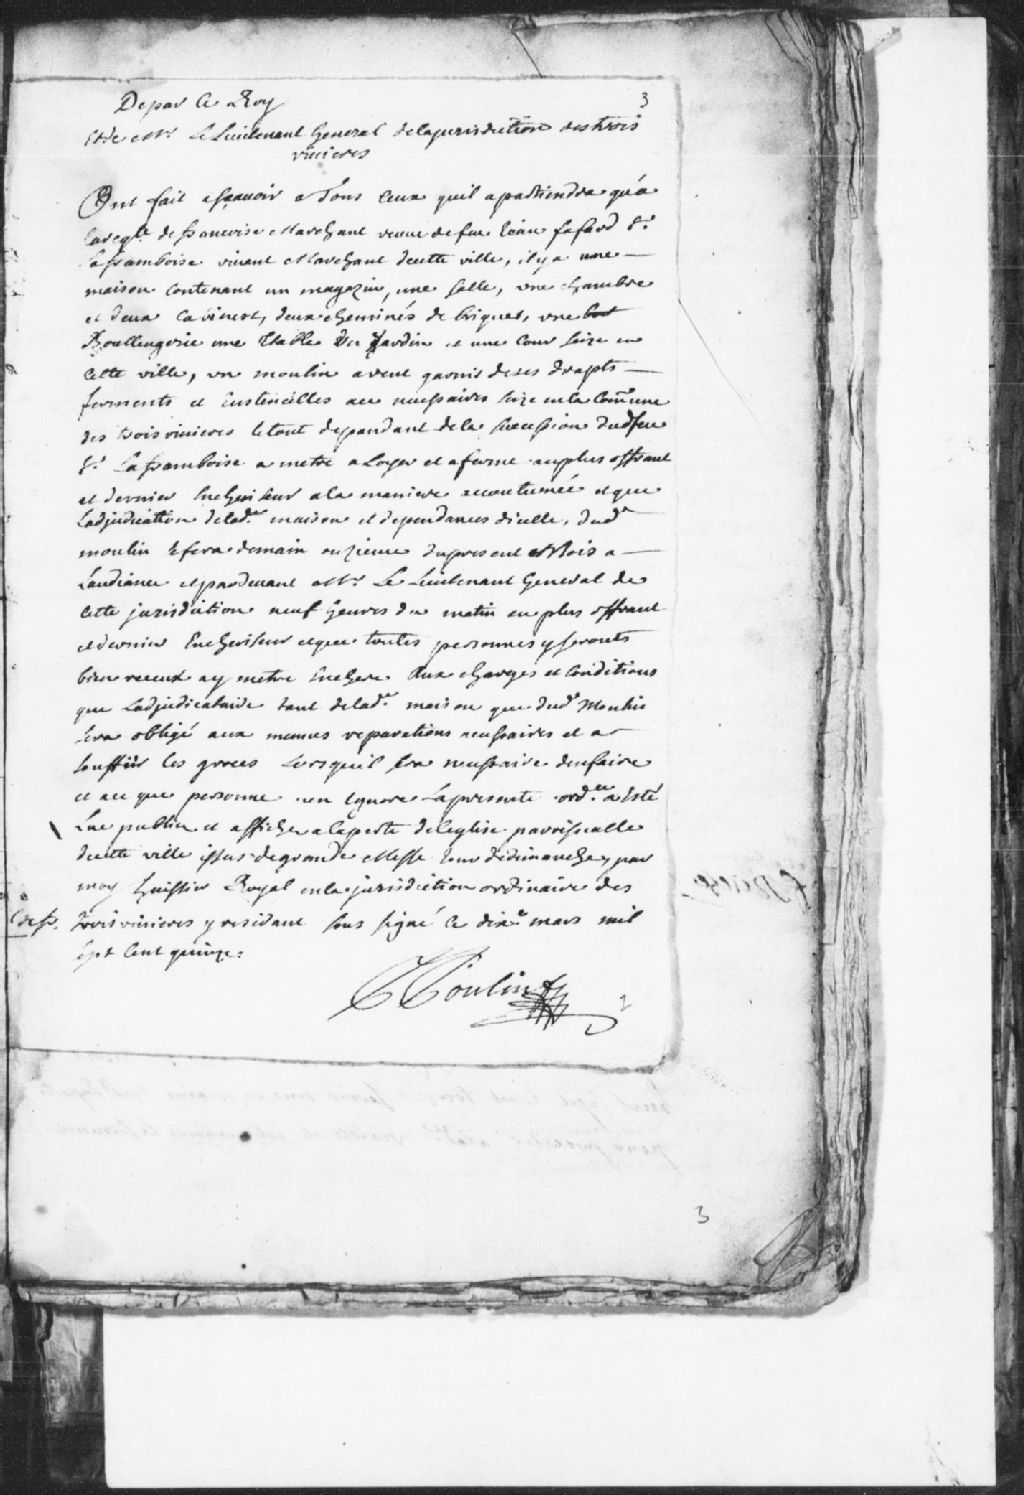 De par Le Roy
3
Et de Mr. Le Lieutenant General de la jurisdiction des trois
rivieres
Ont fait assçauoir a Tous Ceux quil apartiendra qu'a
la reqte. de francoise Marchant veuue de feu Jean fafard Sr.
La framboise viuant Marchant de cette ville, il y a une
maison Contenant un magazin, une salle, vne chambre
et deux Cabinest, deux cheminés de briques, vne
Boullengerie une Etable Un Jardin et une Cour size en
Cette ville, vn moulin a vent garnis de ses drapts
ferments et Eustencilles ace necessaires size en la Commune
des trois rivieres le tout dependant de la succession dud feu
Sr. La framboise a metre a Loyer et a ferme au plus offrant
et dernier Encherisseur a la maniere accoutumée et que
Ladjudication de lad. maison et dependances dicelle, dud.
moulin se fera demain onzieme du present Mois a
Laudiance et pardeuant Mr. Le Lieutenant General de
Cette jurisdiction neuf heures du matin au plus offrant
et dernier Encherisseur et que toutes personnes y seronts
bien receux a y metre Enchere Aux charges et Conditions
que Ladjudicataire tant de lad. maison que dud. Moulin
sera obligé aux menues reparations necessaires et a
souffrir les grosses Lorsquil sera necessaire den faire
et ace que personne nen Ignore La presente ord.ce a Esté
Lue publiée et affichée a la porte de leglise parroissialle
de cette ville issus de grande Messe Jour de dimanche, par
moy huissier Royal en la jurisdiction ordinaire des
trois rivieres y residant sous signé Ce dixe. mars mil
sept Cent quinze.
Poulin
3